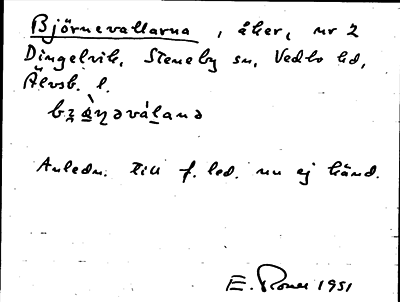 Björnevallarna, åker, nr 2
Dingelvik, Steneby sn, Vedbo hd,
Älvsb. l.
Anledn. till f. led. nu ej känd.
E. Roner 1951